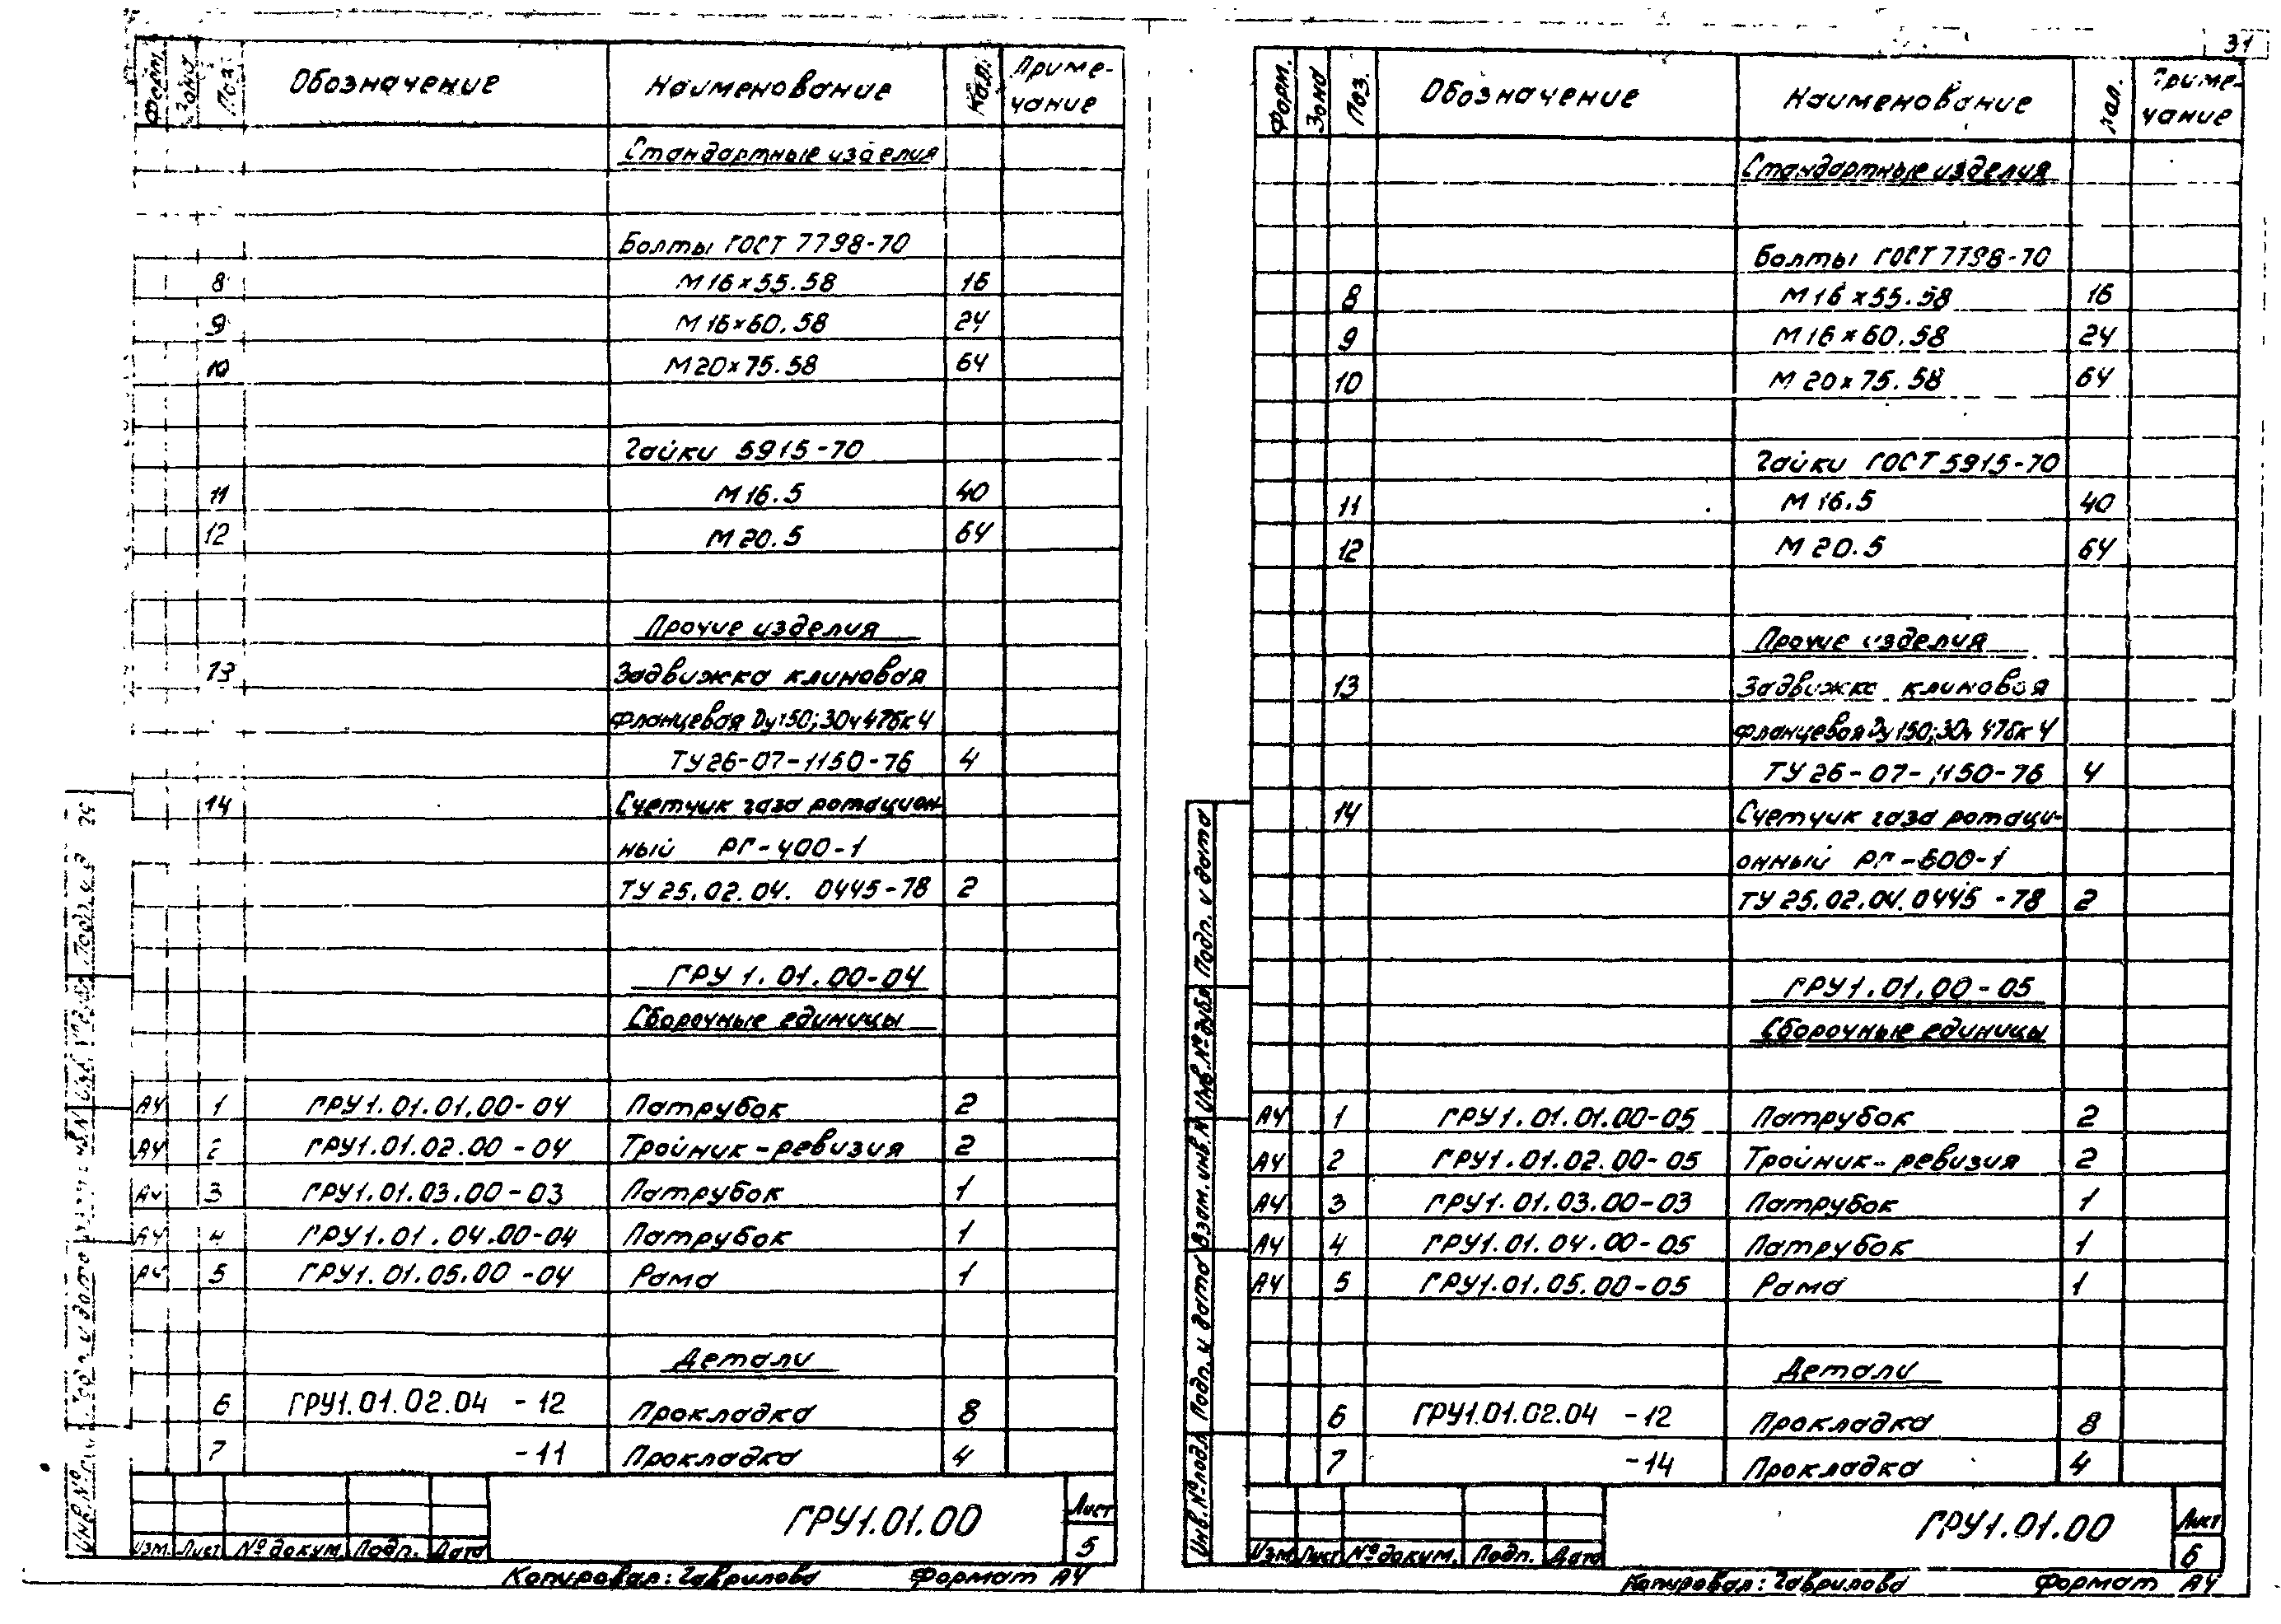 31
Форм. Зона Поз. Обозначение Наименование Кол. Приме-
чание
Стандартные изделия
Болты ГОСТ 7798-70
8 М16×55.58 16
9 М16×60.58 24
10 М20×75.58 64
Гайки 5915-70
11 М16.5 40
12 М20.5 64
Прочие изделия
13 Задвижка клиновая
фланцевая Dу150; 30ч47бк4
ТУ26-07-1150-76 4
14 Счетчик газа ротацион-
ный РГ-400-1
ТУ25.02.04. 0445-78 2
ГРУ 1.01.00-04
Сборочные единицы
А4 1 ГРУ1.01.01.00-04 Патрубок 2
А4 2 ГРУ1.01.02.00-04 Тройник-ревизия 2
А4 3 ГРУ1.01.03.00-03 Патрубок 1
А4 4 ГРУ1.01.04.00-04 Патрубок 1
А4 5 ГРУ1.01.05.00-04 Рама 1
Детали
6 ГРУ1.01.02.04 -12 Прокладка 8
7 -11 Прокладка 4
Изм. Лист № докум. Подп. Дата
ГРУ1.01.00
Лист
5
Копировал: Гаврилова Формат А4
Форм. Зона Поз. Обозначение Наименование Кол. Приме-
чание
Стандартные изделия
Болты ГОСТ 7798-70
8 М16×55.58 16
9 М16×60.58 24
10 М20×75.58 64
Гайки ГОСТ 5915-70
11 М16.5 40
12 М20.5 64
Прочие изделия
13 Задвижка клиновая
фланцевая Dу150; 30ч47бк4
ТУ26-07-1150-76 4
14 Счетчик газа ротаци-
онный РГ-600-1
ТУ25.02.04.0445-78 2
ГРУ1.01.00-05
Сборочные единицы
А4 1 ГРУ1.01.01.00-05 Патрубок 2
А4 2 ГРУ1.01.02.00-05 Тройник-ревизия 2
А4 3 ГРУ1.01.03.00-03 Патрубок 1
А4 4 ГРУ1.01.04.00-05 Патрубок 1
А4 5 ГРУ1.01.05.00-05 Рама 1
Детали
6 ГРУ1.01.02.04 -12 Прокладка 8
7 -14 Прокладка 4
Инв.№подл. Подп. и дата Взам.инв.№ Инв.№дубл. Подп. и дата
Изм. Лист № докум. Подп. Дата
ГРУ1.01.00
Лист
6
Копировал: Гаврилова Формат А4